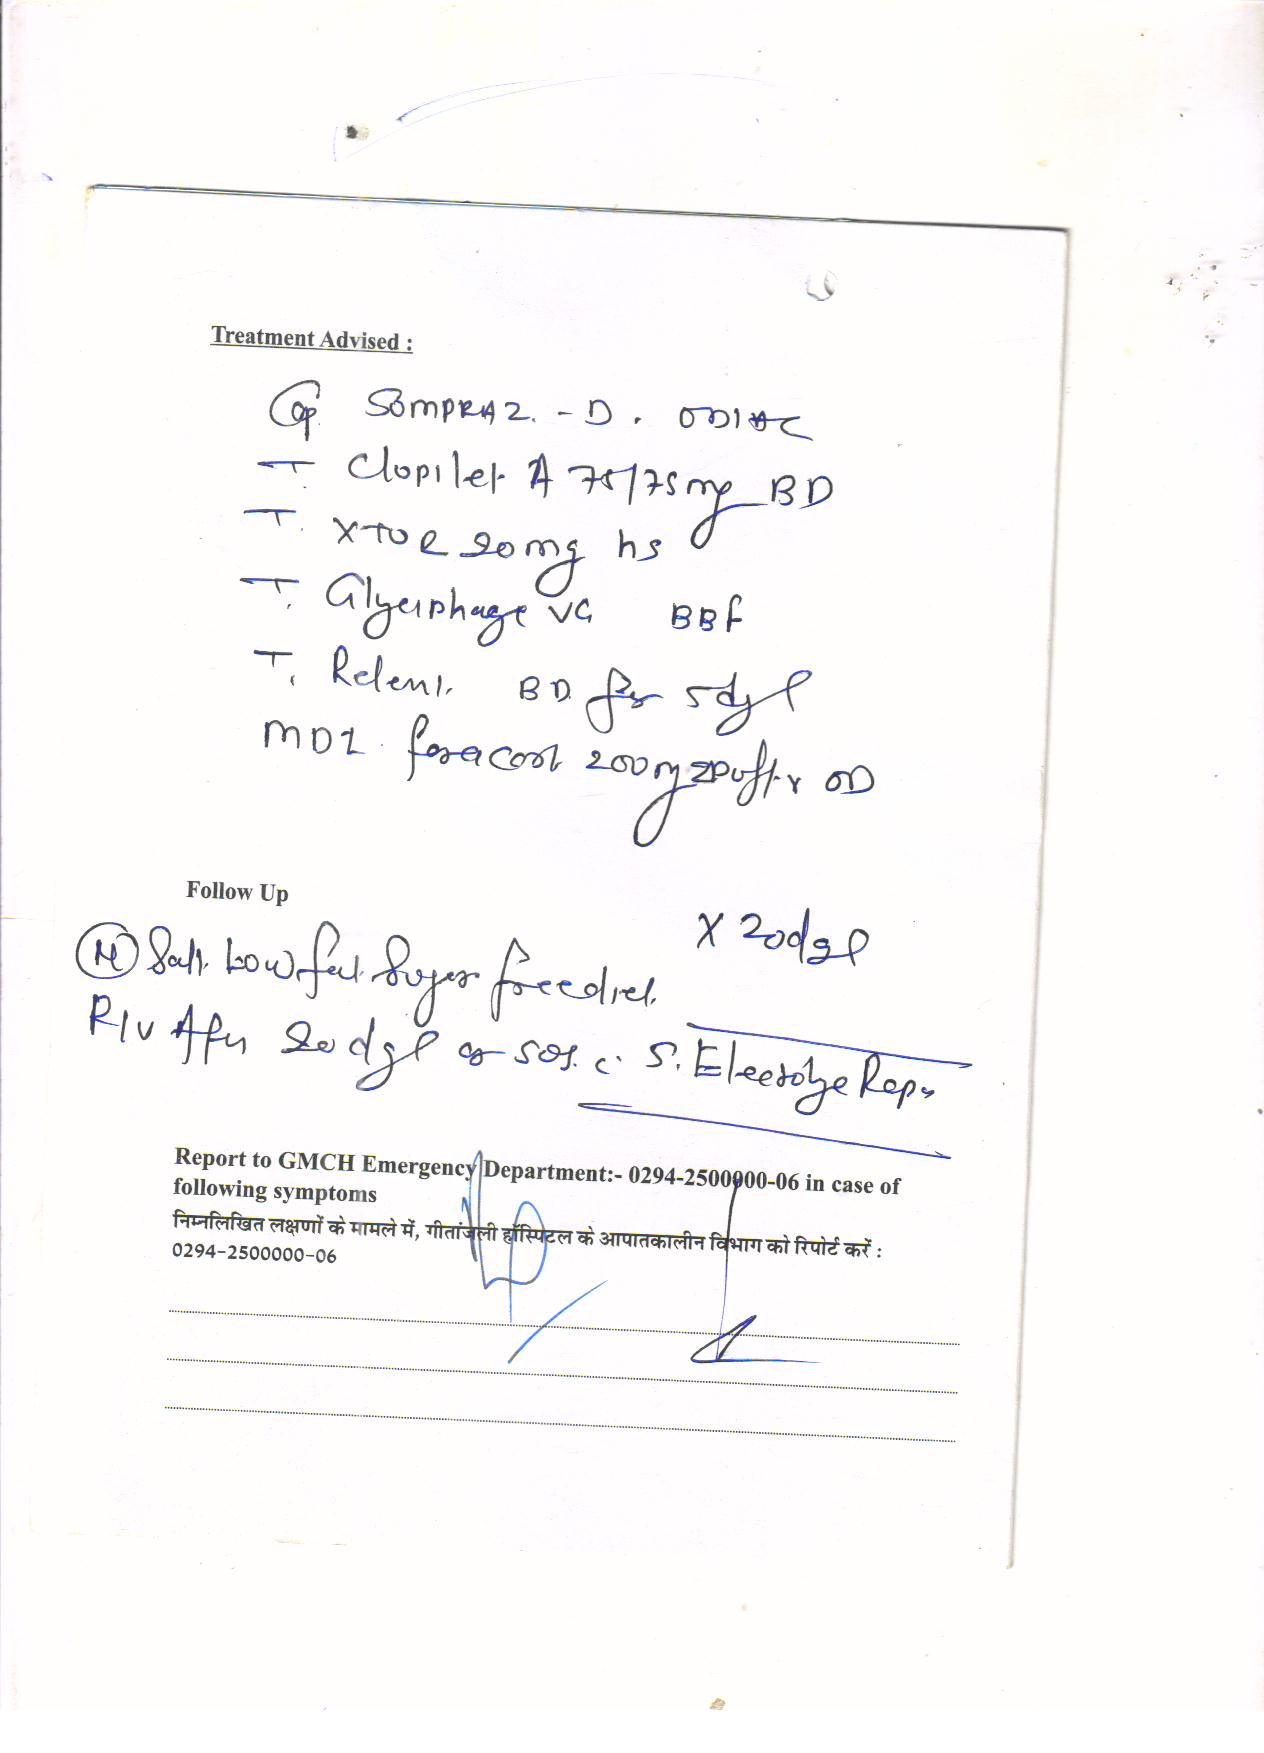 Treatment Advised :
Cap SOMPRAZ. - D. OD1AC
T. Clopilet A 75/75mg BD
T. XTOR 20mg hs
T. Glyciphage VG BBF
T. Relent. BD for 5dys
MDI. foracort 200mg 2Puffs OD
Follow Up
X 20dys
(N) Salt. Low fat. Sugar free diet.
R/v After 20 dys or SOS. c. S. Electrolyte Repo
Report to GMCH Emergency Department:- 0294-2500000-06 in case of
following symptoms
निम्नलिखित लक्षणों के मामले में, गीतांजली हॉस्पिटल के आपातकालीन विभाग को रिपोर्ट करें :
0294-2500000-06